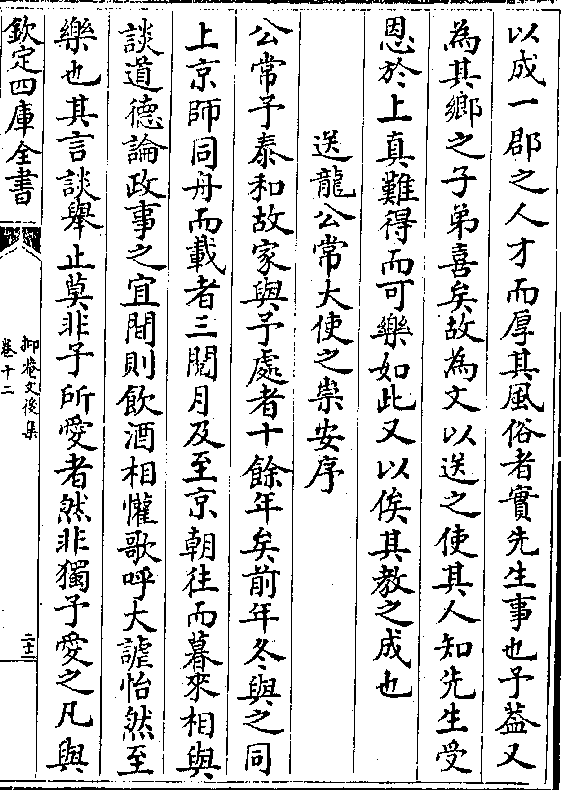 以成一郡之人才而厚其風俗者實先生事也予葢又
為其鄉之子弟喜矣故為文以送之使其人知先生受
恩於上真難得而可樂如此又以俟其教之成也
送龍公常大使之崇安序
公常予泰和故家與予處者十餘年矣前年冬與之同
上京師同舟而載者三閱月及至京朝往而暮來相與
談道德論政事之宜間則飲酒相懽歌呼大謔怡然至
樂也其言談舉止莫非予所愛者然非獨予愛之凡與
欽定四庫全書
抑菴文後集
卷十二
二十二